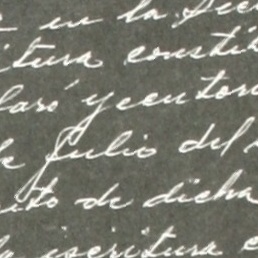 en la
itura constit
laró y ecutori
de Julio del
ito de dicha
la escritura